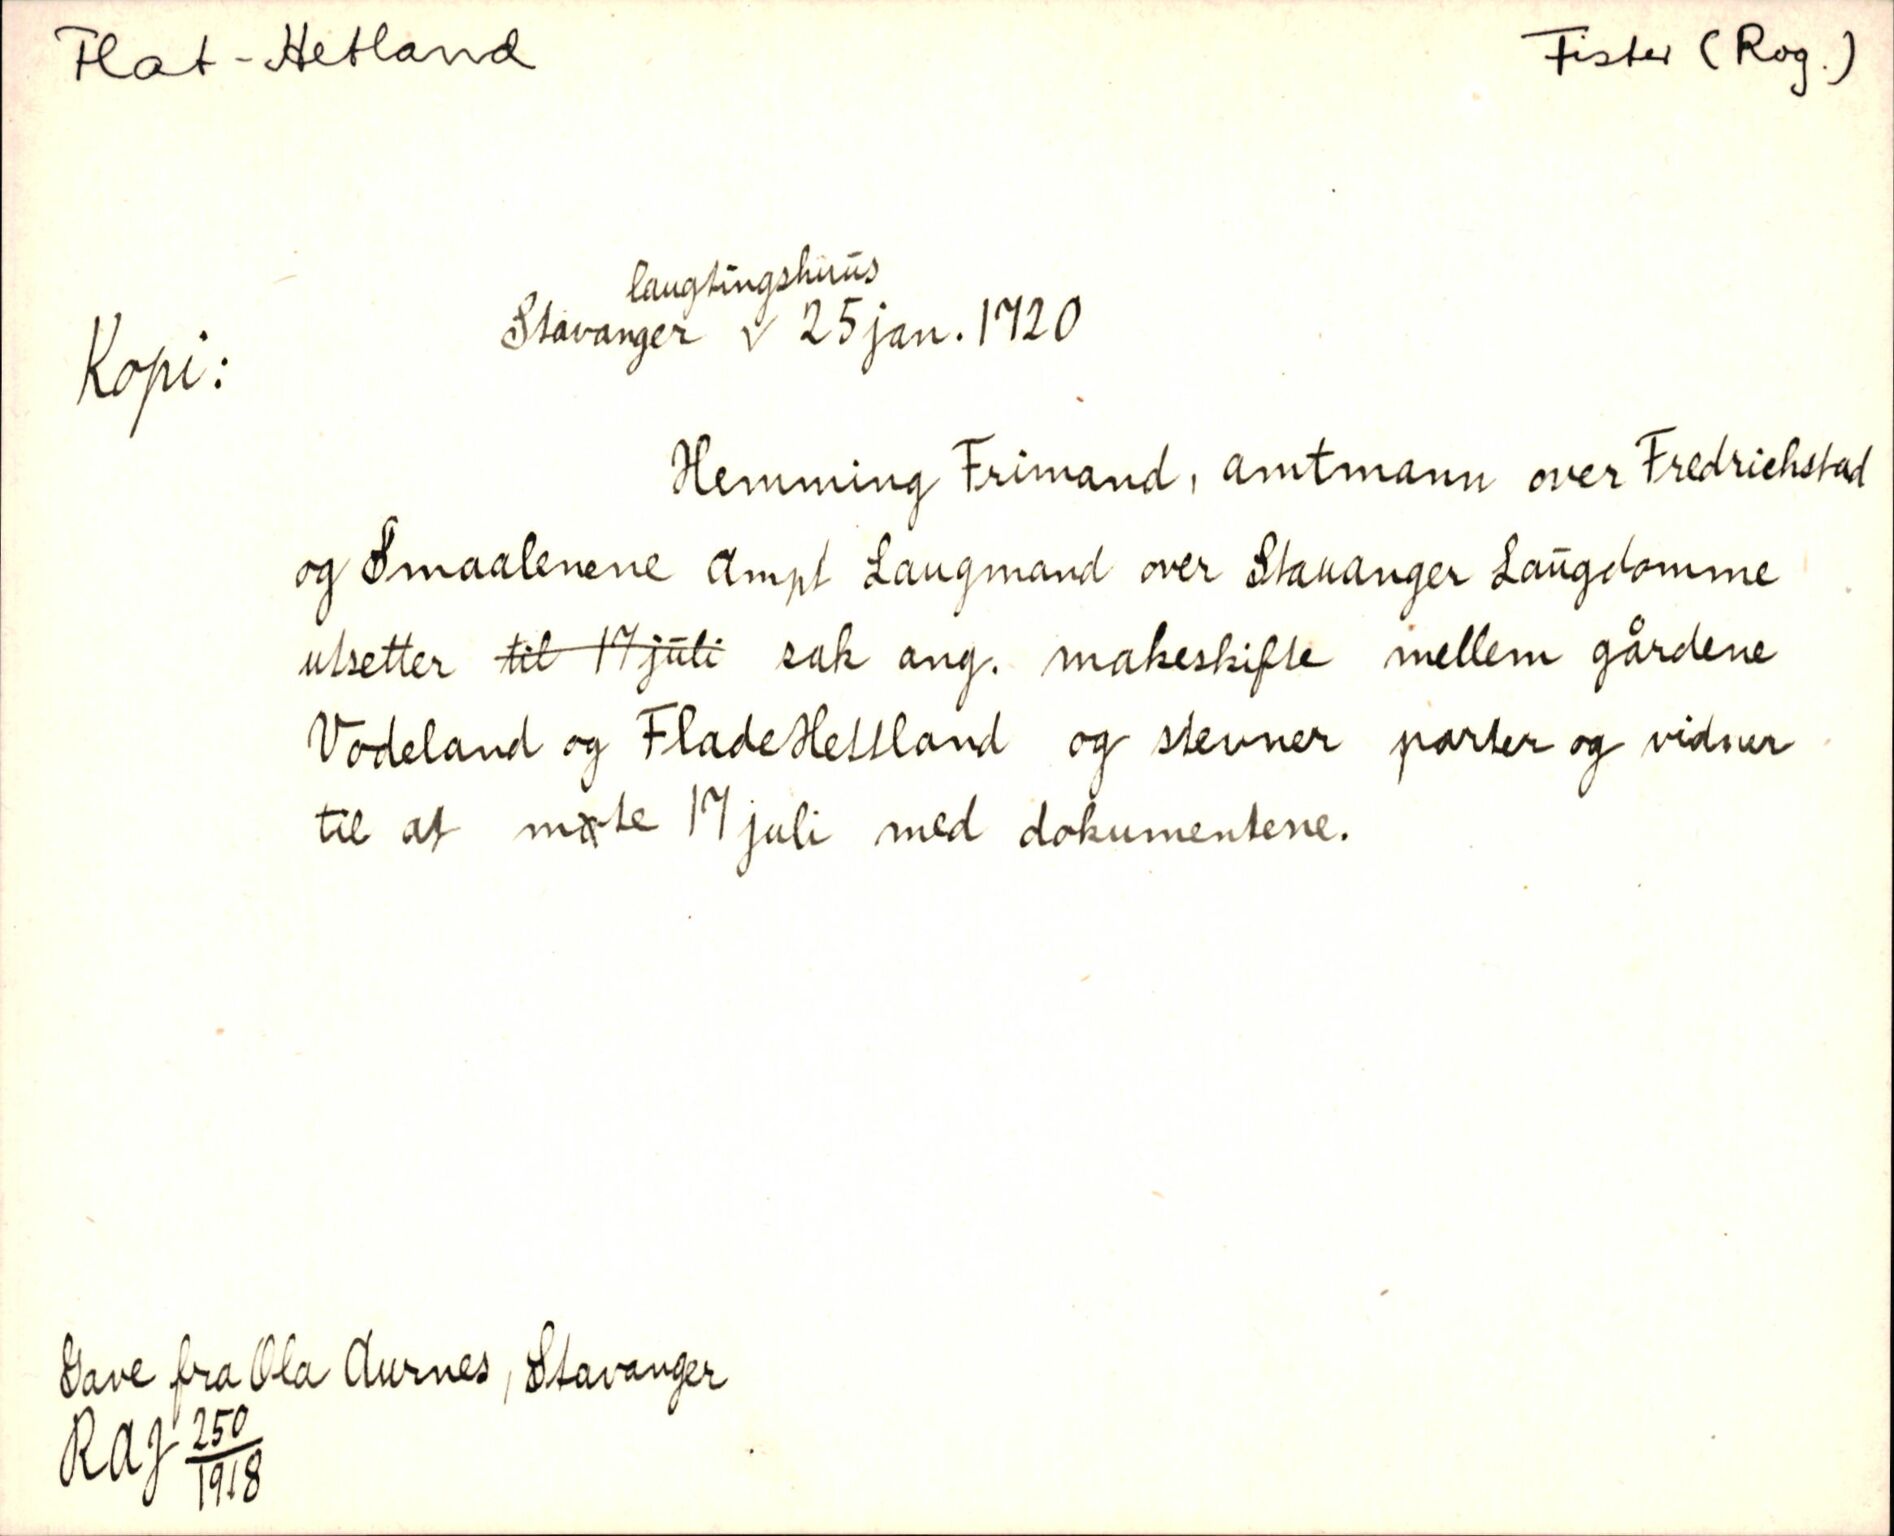 Flat-Hetland Fister (Rog.)
laugtingshuus
Stavanger v 25 jan. 1720
Kopi:
Hemming Frimand, amtmann over Fredrichstad
og Smaalenene Ampt Laugmand over Stauanger Laugdomme
utsetter til 17 juli sak ang. makeskifte mellem gårdene
Vodeland og Flade Hettland og stevner parter og vidner
til at møte 17 juli med dokumentene.
Gave fra Ola Aurnes, Stavanger
RAJ 250/1918